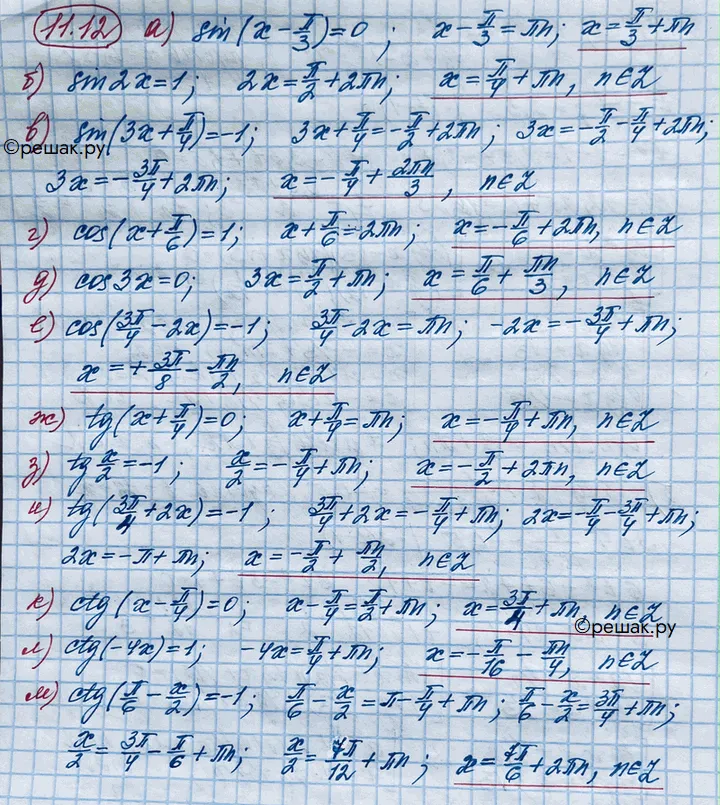 11.12 а) sin(x-π/3)=0; x-π/3=πn; x=π/3+πn
б) sin2x=1; 2x=π/2+2πn; x=π/4+πn, n∈Z
в) sin(3x+π/4)=-1; 3x+π/4=-π/2+2πn; 3x=-π/2-π/4+2πn;
©решак.ру
3x=-3π/4+2πn; x=-π/4+2πn/3, n∈Z
г) cos(x+π/6)=1; x+π/6=2πn; x=-π/6+2πn, n∈Z
д) cos3x=0; 3x=π/2+πn; x=π/6+πn/3, n∈Z
е) cos(3π/4-2x)=-1; 3π/4-2x=πn; -2x=-3π/4+πn;
x=+3π/8-πn/2, n∈Z
ж) tg(x+π/4)=0; x+π/4=πn; x=-π/4+πn, n∈Z
з) tg x/2=-1; x/2=-π/4+πn; x=-π/2+2πn, n∈Z
и) tg(3π/4+2x)=-1; 3π/4+2x=-π/4+πn; 2x=-π/4-3π/4+πn;
2x=-π+πn; x=-π/2+πn/2, n∈Z
к) ctg(x-π/4)=0; x-π/4=π/2+πn; x=3π/4+πn, n∈Z
©решак.ру
л) ctg(-4x)=1; -4x=π/4+πn; x=-π/16-πn/4, n∈Z
м) ctg(π/6-x/2)=-1; π/6-x/2=π-π/4+πn; π/6-x/2=3π/4+πn;
x/2=3π/4-π/6+πn; x/2=7π/12+πn; x=7π/6+2πn, n∈Z